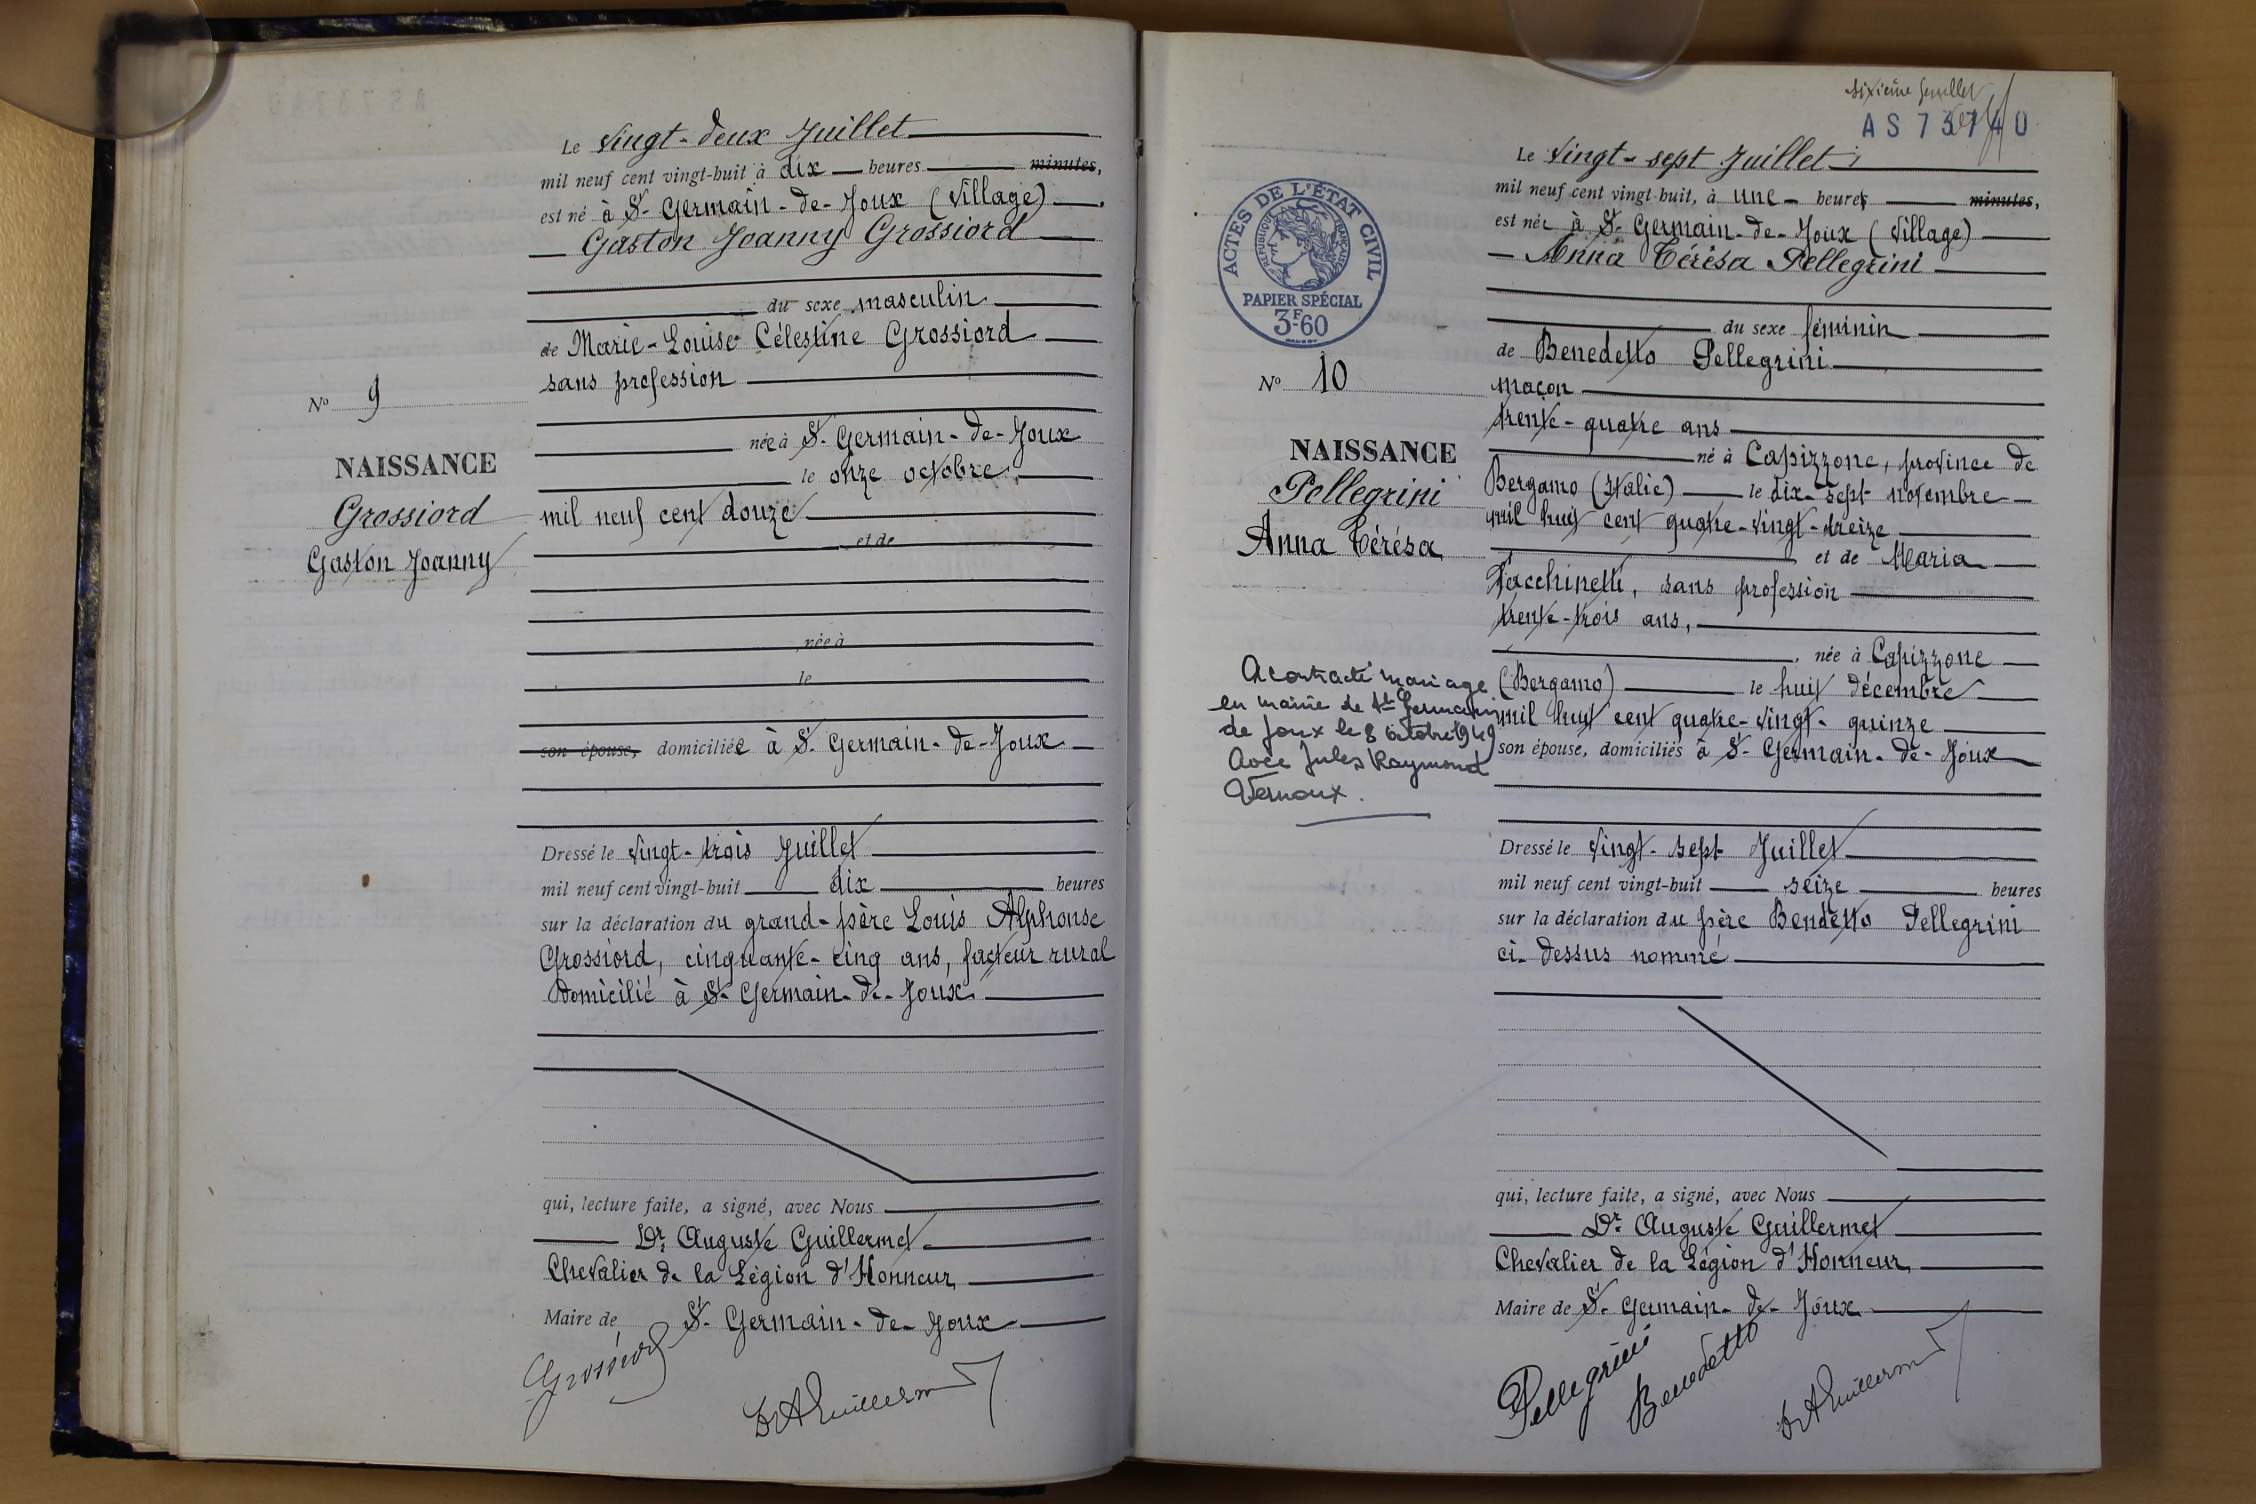 Le vingt-deux Juillet
mil neuf cent vingt-huit à dix heures minutes,
est né à St-Germain-de-Joux (Village)
Gaston Joanny Grossiord
du sexe masculin
de Marie-Louise Célestine Grossiord
sans profession
née à St-Germain-de-Joux
le onze octobre
mil neuf cent douze
et de
née à
le
son épouse, domiciliée à St-Germain-de-Joux
Dressé le vingt-trois Juillet
mil neuf cent vingt-huit dix heures
sur la déclaration du grand-père Louis Alphonse
Grossiord, cinquante-cinq ans, facteur rural
domicilié à St-Germain-de-Joux
qui, lecture faite, a signé, avec Nous
Dr. Auguste Guillermet
Chevalier de la Légion d'Honneur
Maire de St-Germain-de-Joux
Grossiord
Dr A Guillermet
No 9
NAISSANCE
Grossiord
Gaston Joanny
sixième feuillet
AS 73740
Le vingt-sept Juillet
mil neuf cent vingt-huit, à une heures minutes,
est née à St-Germain-de-Joux (Village)
Anna Térésa Pellegrini
du sexe féminin
de Benedetto Pellegrini
maçon
trente-quatre ans
né à Capizzone, province de
Bergamo (Italie) le dix-sept novembre
mil huit cent quatre-vingt-treize
et de Maria
Facchinetti, sans profession
trente-trois ans,
née à Capizzone
(Bergamo) le huit décembre
mil huit cent quatre-vingt-quinze
son épouse, domiciliés à St-Germain-de-Joux
Dressé le vingt-sept Juillet
mil neuf cent vingt-huit seize heures
sur la déclaration du père Bendetto Pellegrini
ci-dessus nommé
qui, lecture faite, a signé, avec Nous
Dr. Auguste Guillermet
Chevalier de la Légion d'Honneur,
Maire de St-Germain-de-Joux
Pellegrini
Benedetto
Dr A Guillermet
ACTES DE L'ÉTAT CIVIL
RÉPUBLIQUE FRANÇAISE
PAPIER SPÉCIAL
3F60
No 10
NAISSANCE
Pellegrini
Anna Térésa
A contracté mariage
en mairie de St Germain
de Joux le 8 octobre 1949
avec Jules Raymond
Vernoux.